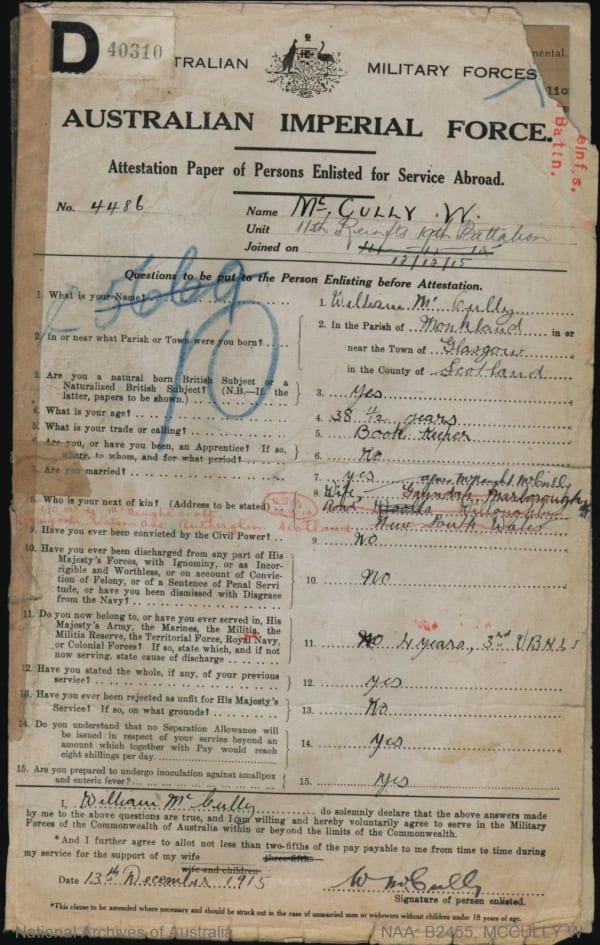 D 40310
TRALIAN MILITARY FORCES
mental
AUSTRALIAN IMPERIAL FORCE.
einf,s.
Battn.
Attestation Paper of Persons Enlisted for Service Abroad.
No. 4486 Name Mc CULLY W.
Unit 11th Reinfts 19th Battalion
Joined on
13/12/15
5669
Questions to be put to the Person Enlisting before Attestation.
1. What is your Name? 1. William Mc Cully
2. In or near what Parish or Town were you born? 2. In the Parish of Monkland in or
near the Town of Glasgow
in the County of Scotland
3. Are you a natural born British Subject or a
Naturalized British Subject? (N.B.—If the
latter, papers to be shown.) 3. Yes
4. What is your age? 4. 38 4/12 years
5. What is your trade or calling? 5. Book Keeper
6. Are you, or have you been, an Apprentice? If so,
where, to whom, and for what period? 6. No
7. Are you married? 7. yes
8. Who is your next of kin? (Address to be stated) 8. Wife, Agnes McNaught McCully
New South Wales
Rutherglen Scotland
9. Have you ever been convicted by the Civil Power? 9. No
10. Have you ever been discharged from any part of His
Majesty's Forces, with Ignominy, or as Incor-
rigible and Worthless, or on account of Convic-
tion of Felony, or of a Sentence of Penal Servi
tude, or have you been dismissed with Disgrace
from the Navy? 10. No
11. Do you now belong to, or have you ever served in, His
Majesty's Army, the Marines, the Militia, the
Militia Reserve, the Territorial Force, Royal Navy,
or Colonial Forces? If so, state which, and if not
now serving, state cause of discharge 11. No 4 years, 3rd V B H L I
12. Have you stated the whole, if any, of your previous
service? 12. yes
13. Have you ever been rejected as unfit for His Majesty's
Service? If so, on what grounds? 13. No
14. Do you understand that no Separation Allowance will
be issued in respect of your service beyond an
amount which together with Pay would reach
eight shillings per day 14. yes
15. Are you prepared to undergo inoculation against smallpox
and enteric fever? 15. yes
I, William Mc Cully do solemnly declare that the above answers made
by me to the above questions are true, and I am willing and hereby voluntarily agree to serve in the Military
Forces of the Commonwealth of Australia within or beyond the limits of the Commonwealth.
*And I further agree to allot not less than two-fifths of the pay payable to me from time to time during
three-fifths
my service for the support of my wife
wife and children
Date 13th December 1915 W McCully
Signature of person enlisted.
*This clause to be amended where necessary and should be struck out in the case of unmarried men or widowers without children under 18 years of age.
National Archives of Australia NAA: B2455, MCCULLY W